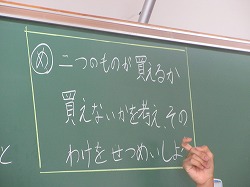 と
め 二つのものが買えるか
買えないかを考え、その
わけをせつめいしよ